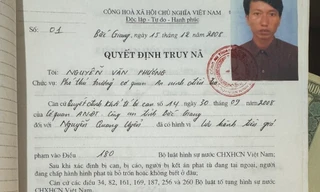 CỘNG HÒA XÃ HỘI CHỦ NGHĨA VIỆT NAM
Độc lập - Tự do - Hạnh phúc
Số: 01
Bắc Giang, ngày 15 tháng 12 năm 2008
QUYẾT ĐỊNH TRUY NÃ
Tôi: NGUYỄN VĂN PHƯƠNG
Chức vụ Phó Thủ trưởng cơ quan An ninh điều tra
Căn cứ Quyết định khởi tố bị can số 14 ngày 30 tháng 09 năm 2008
của Cơ quan ANĐT Công an tỉnh Bắc Giang
đối với Nguyễn Quang Uyên đã có hành vi Lưu hành tiền giả
phạm vào Điều 180 Bộ luật hình sự nước CHXHCN Việt Nam.
Sau khi xác định bị can, bị cáo, người bị kết án phạt tù đang tại ngoại, người đang
chấp hành hình phạt tù bỏ trốn hoặc không biết ở đâu;
Căn cứ các điều 34, 82, 161, 169, 187, 256 và 260 Bộ luật tố tụng hình sự nước
CHXHCN Việt Nam,